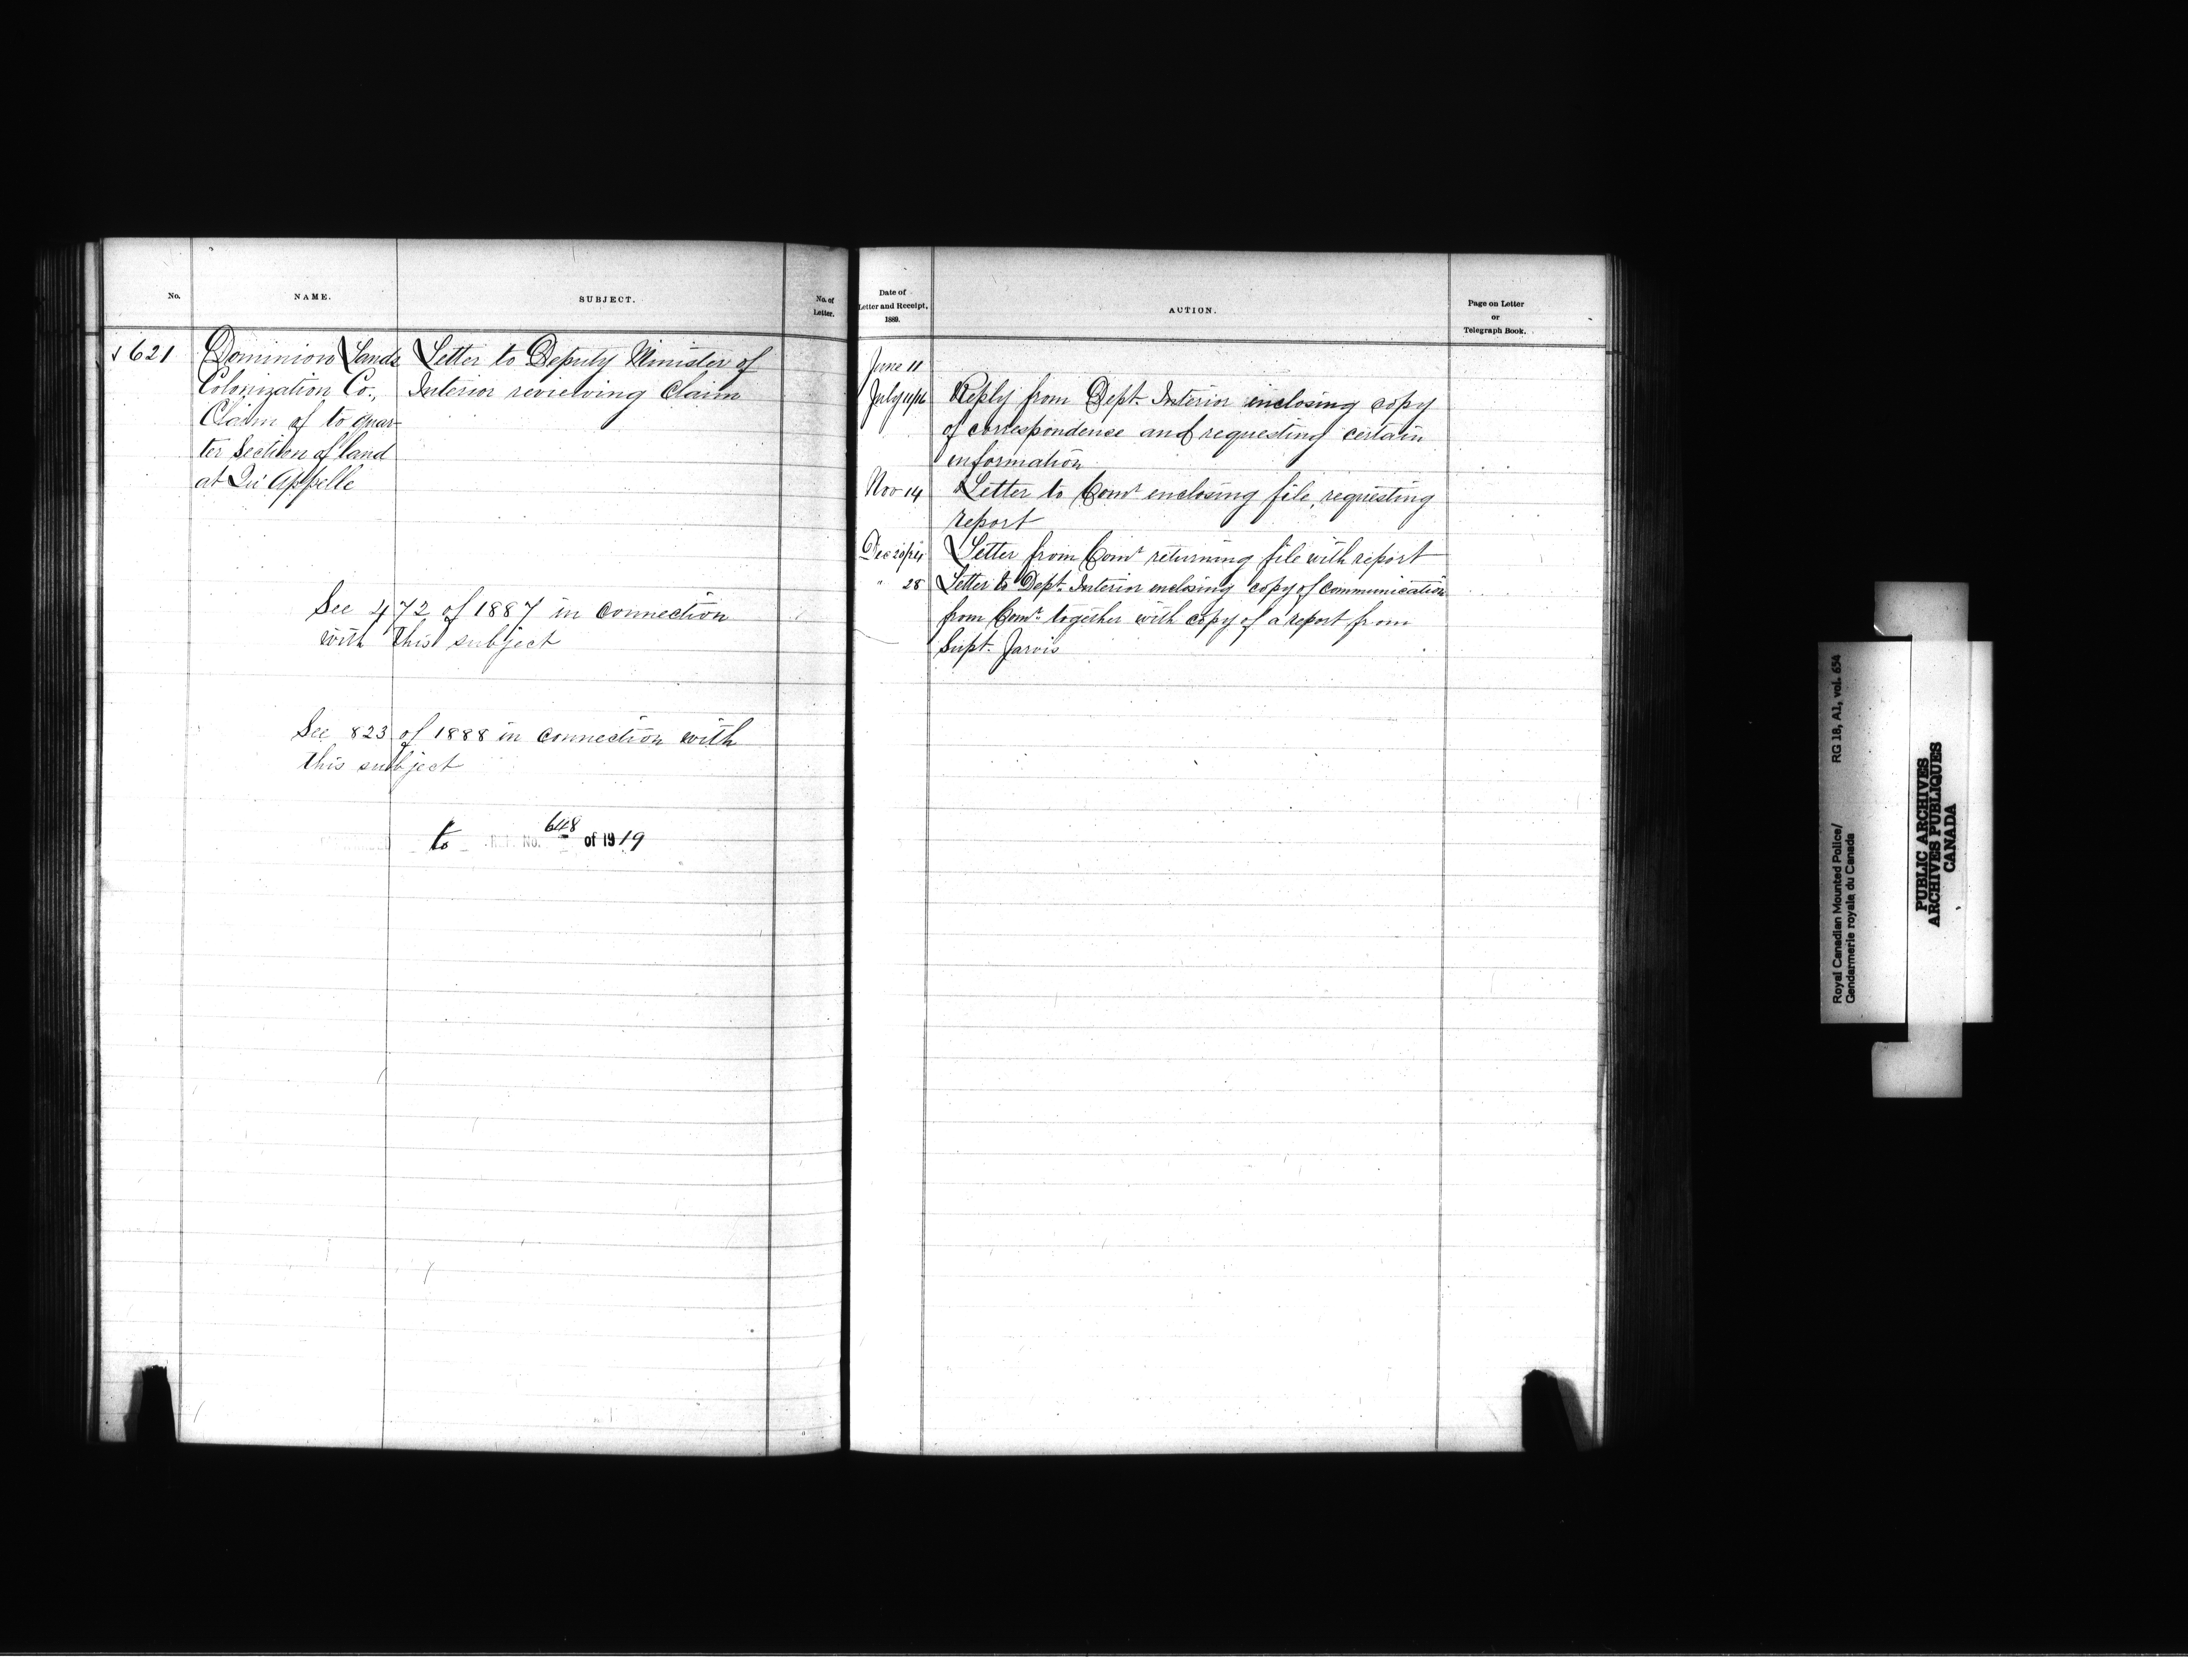 No.
NAME.
SUBJECT.
No. of
Letter.
✓ 621
Dominion Lands
Colonization Co.,
Claim of to quar-
ter Section of land
at Qu'Appelle
Letter to Deputy Minister of
Interior reviewing Claim
See 472 of 1887 in connection
with this subject
See 823 of 1888 in connection with
this subject
to No. 648 of 1919
Date of
Letter and Receipt,
1889.
ACTION.
Page on Letter
or
Telegraph Book.
June 11
July 11/16 Reply from Dept. Interior enclosing copy
of correspondence and requesting certain
information
Nov 14 Letter to Comr enclosing file, requesting
report
Dec 20/24 Letter from Comr returning file with report
" 28 Letter to Dept. Interior enclosing copy of communication
from Comr. together with copy of a report from
Supt. Jarvis
Royal Canadian Mounted Police/
Gendarmerie royale du Canada
RG 18, A1, vol. 654
PUBLIC ARCHIVES
ARCHIVES PUBLIQUES
CANADA